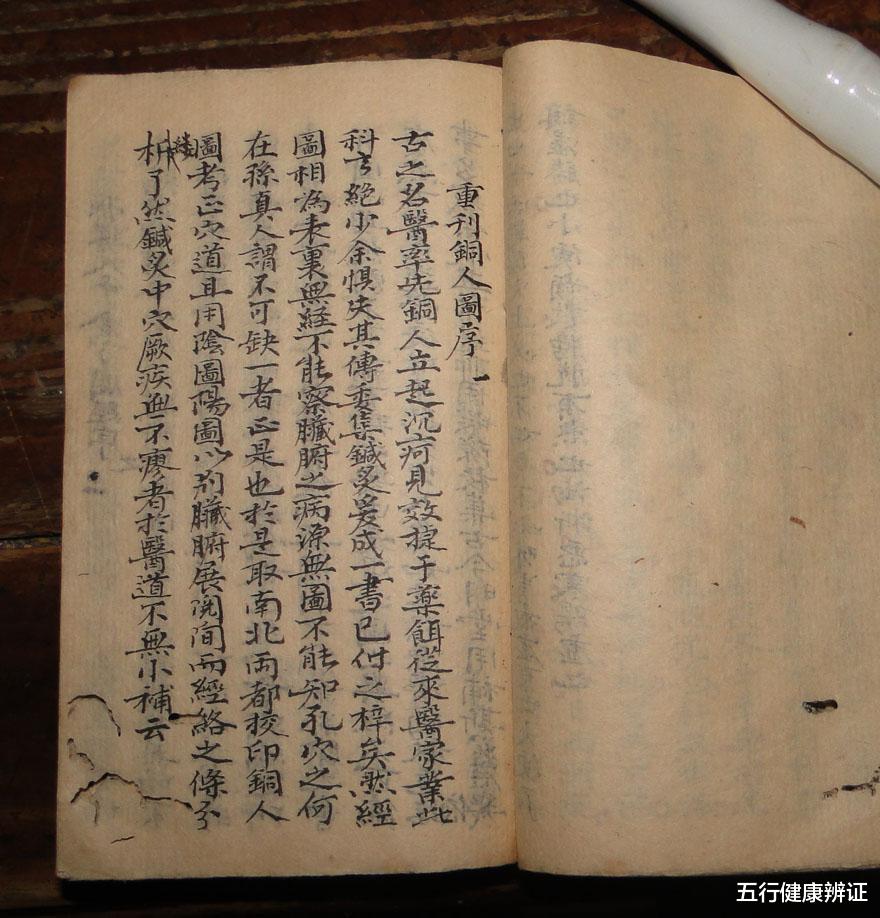 重刊銅人圖序
古之名醫率先銅人立起沉疴見效捷于藥餌從來醫家業此
科者絕少余惧失其傳委集鍼灸爰成一書已付之梓矣然經
圖相為表裏無経不能察臟腑之病源無圖不能知孔穴之何
在孫真人謂不可缺一者正是也於是取南北両都挍印銅人
圖考正穴道且用陰圖陽圖以别臟腑展阅间而經絡之條分
縷析了然鍼灸中穴厥疾無不瘳者於醫道不無小補云
五行健康辨证